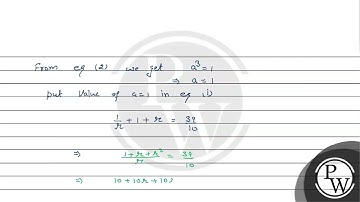 From eq (2) we get a³ = 1
⇒ a = 1
put value of a=1 in eq (i)
1/r + 1 + r = 39/10
⇒ (1+r+r²)/r = 39/10
⇒ 10+10r+10
PW